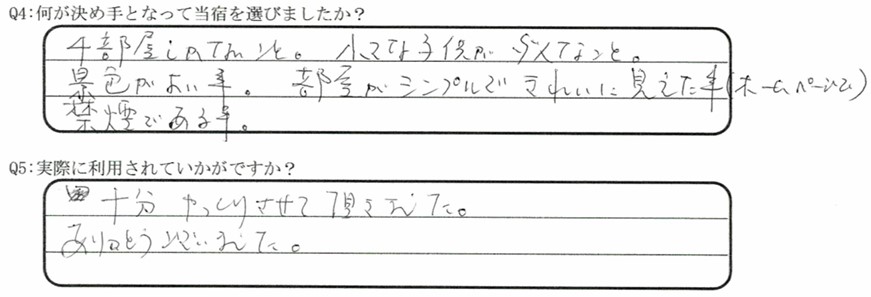 Q4:何が決め手となって当宿を選びましたか？
4部屋しかないこと。小さな子供が少ないこと。
景色がよい事。部屋がシンプルできれいに見えた事(ホームページで)
禁煙である事。
Q5:実際に利用されていかがですか？
十分ゆっくりさせて頂きました。
ありがとうございました。